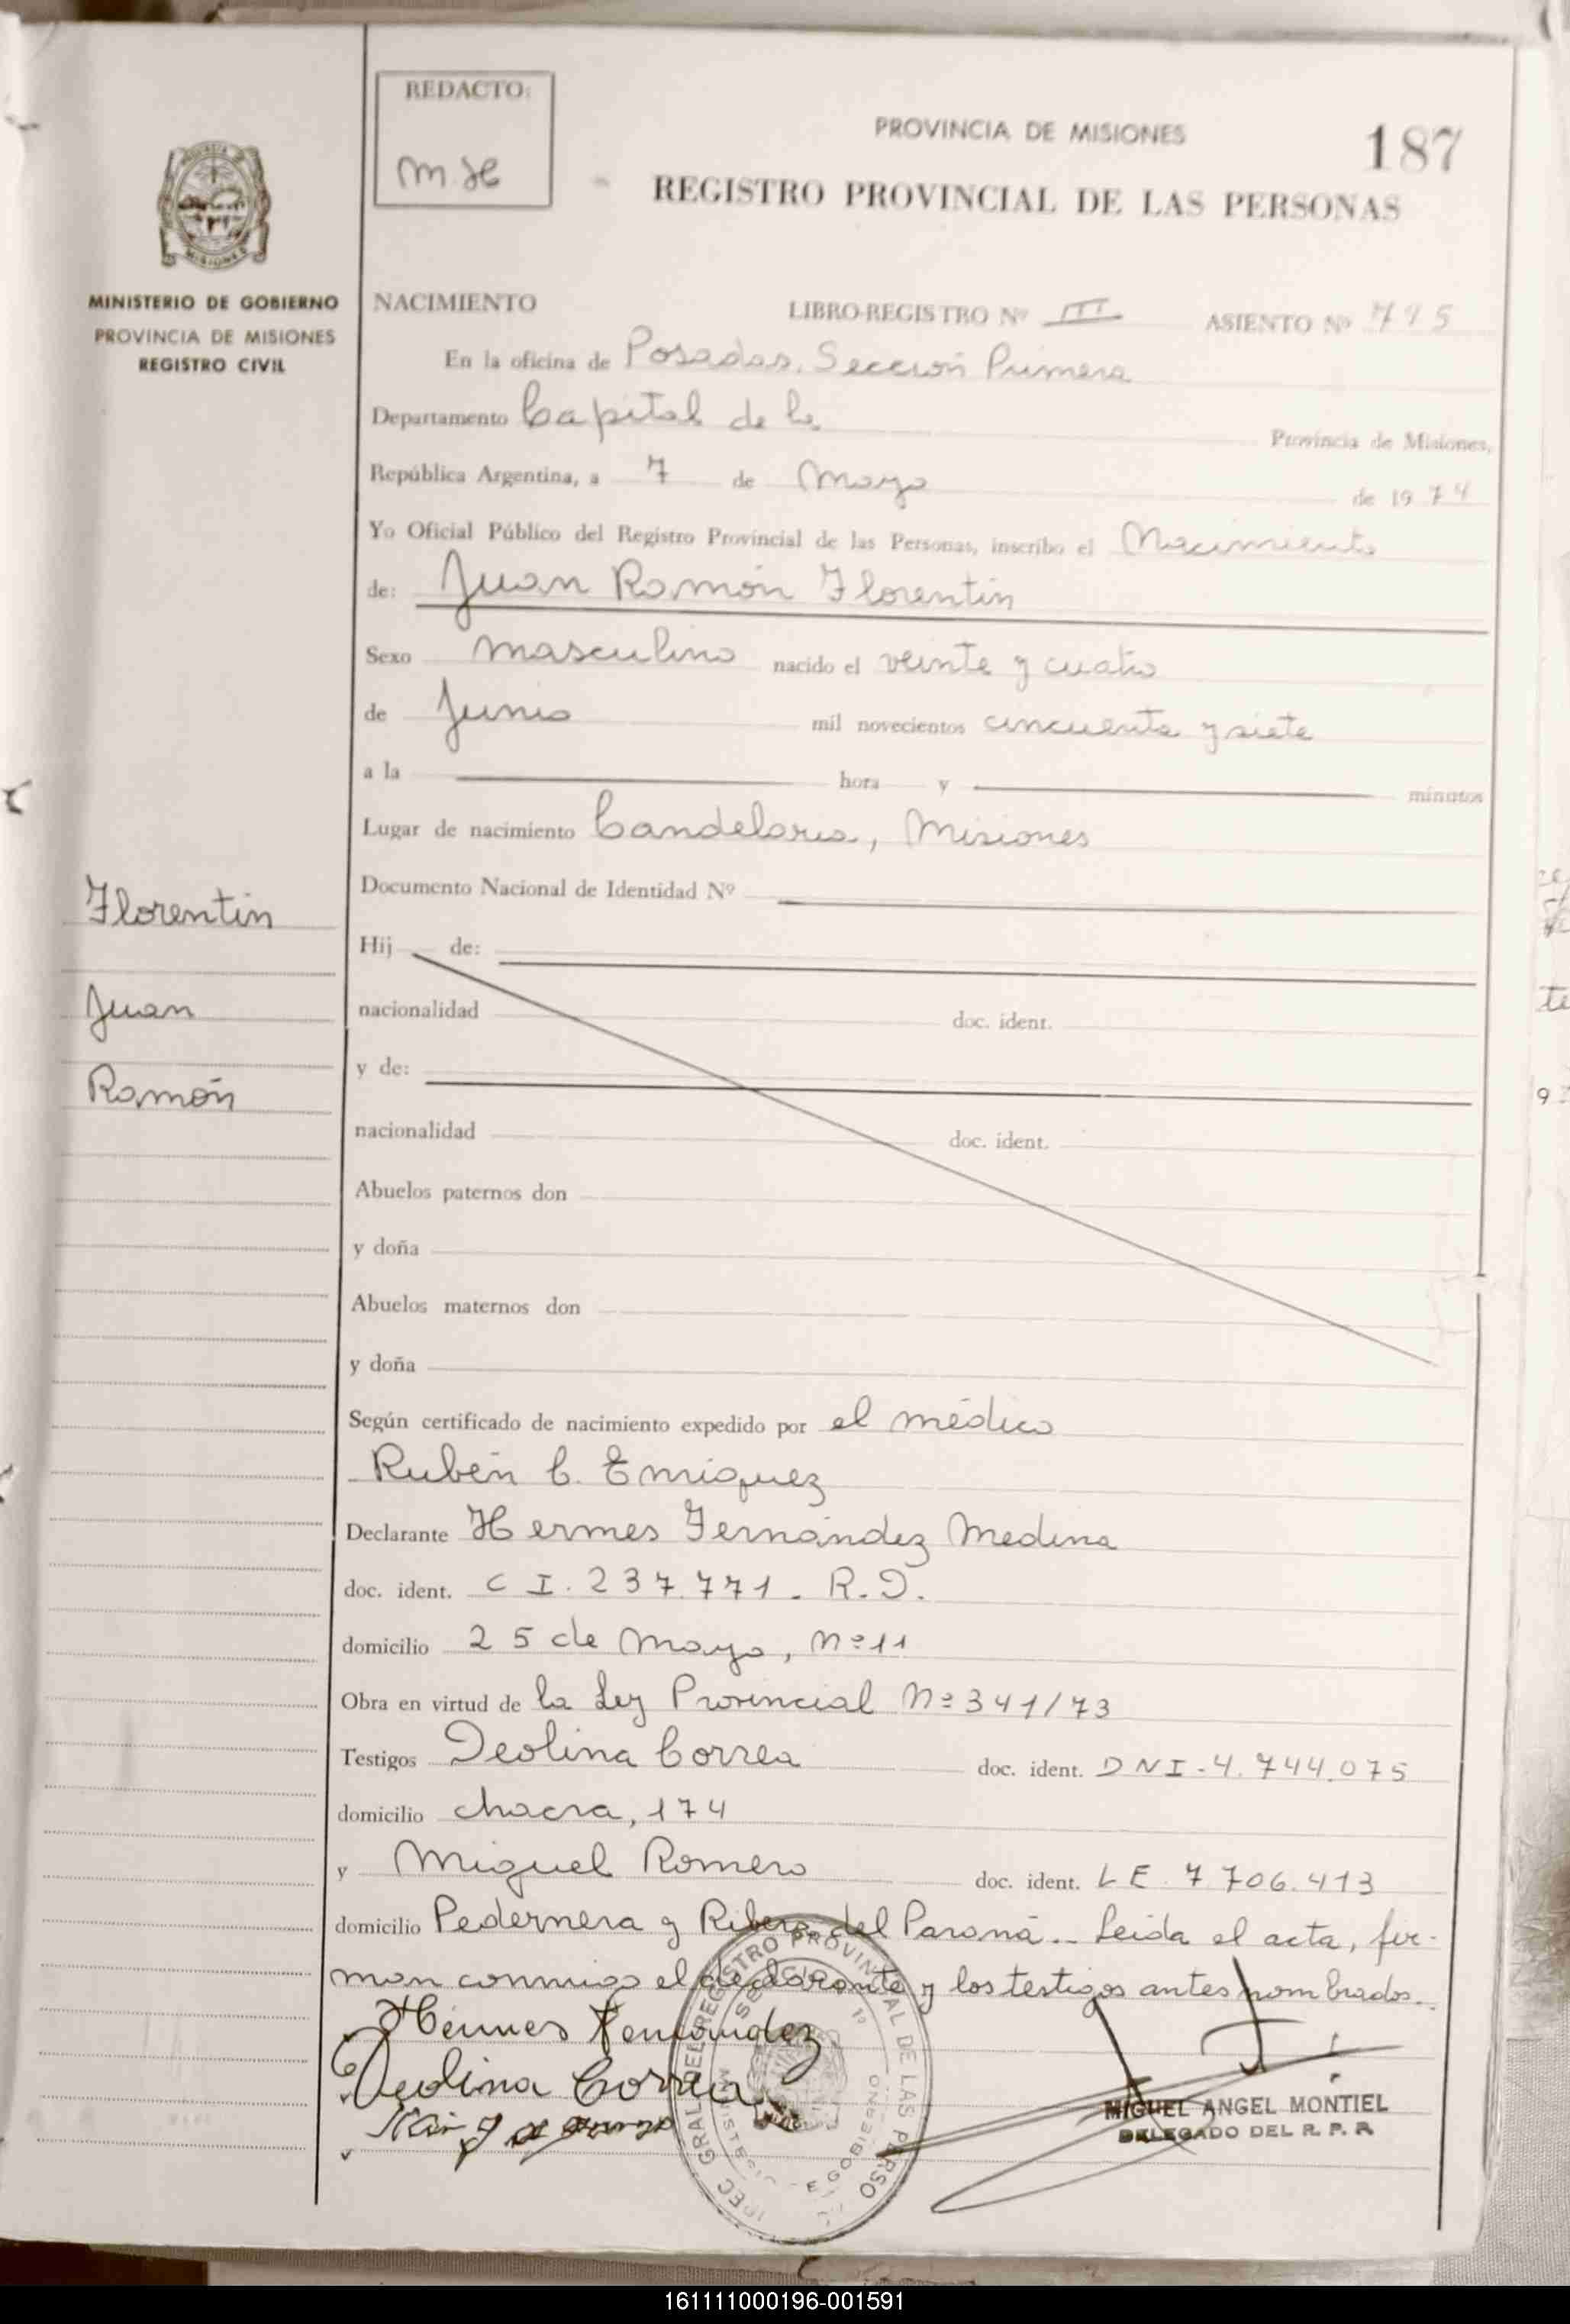 REDACTO:
PROVINCIA DE MISIONES
187
REGISTRO PROVINCIAL DE LAS PERSONAS
MINISTERIO DE GOBIERNO
PROVINCIA DE MISIONES
REGISTRO CIVIL
NACIMIENTO LIBRO-REGISTRO Nº III ASIENTO Nº 795
En la oficina de Posadas, Sección Primera
Departamento Capital de la Provincia de Misiones,
República Argentina, a 7 de Mayo de 1974
Yo Oficial Público del Registro Provincial de las Personas, inscribo el Nacimiento
de: Juan Ramón Florentin
Sexo masculino nacido el veinte y cuatro
de Junio mil novecientos cincuenta y siete
a la hora y minutos
Lugar de nacimiento Candelaria, Misiones
Documento Nacional de Identidad Nº
Florentin
Juan
Ramón
Hij de:
nacionalidad doc. ident.
y de:
nacionalidad doc. ident.
Abuelos paternos don
y doña
Abuelos maternos don
y doña
Según certificado de nacimiento expedido por el médico
Rubén C. Enriquez
Declarante Hermes Fernández Medina
doc. ident. C I. 237.771. R.D.
domicilio 25 de Mayo, Nº 11
Obra en virtud de la Ley Provincial Nº 341/73
Testigos Deolina Correa doc. ident. DNI-4.744.075
domicilio chacra, 174
y Miguel Romero doc. ident. LE. 7 706.413
domicilio Pedernera y Ribera del Paraná.- Leída el acta, fir-
man conmigo el declarante y los testigos antes nombrados.
Hermes Fernández
Deolina Correa
MIGUEL ANGEL MONTIEL
DELEGADO DEL R. P. P.
161111000196-001591